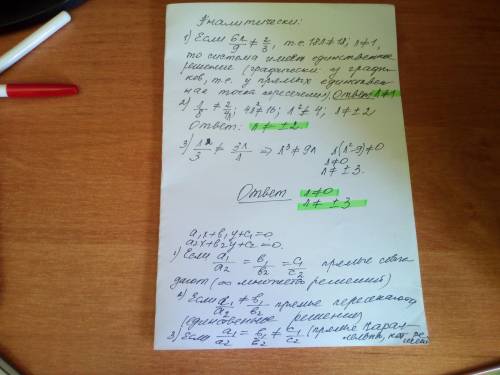 Аналитически:
1) Если 6λ/9 ≠ 2/3, т.е. 18λ≠18; λ≠1,
то система имеет единственное
решение (графически у графи-
ков, т.е. у прямых единствен-
ная точка пересечения). Ответ λ≠1
2) λ/8 ≠ 2/4λ; 4λ²≠16; λ²≠4; λ≠±2
Ответ: λ≠ ±2
3) /3 ≠ 3λ/λ ⇒ λ³≠9λ λ(λ²-9)≠0
λ≠0
λ≠ ±3.
Ответ λ≠0
λ≠ ±3
a₁x+b₁y+c₁=0
a₂x+b₂y+c₂=0.
1) Если a₁/a₂ = b₁/b₂ = c₁/c₂ прямые совпа-
дают (∞ множество решений)
2) Если a₁/a₂ ≠ b₁/b₂ прямые пересекаются
(единственное решение)
3) Если a₁/a₂ = b₁/b₂ ≠ c₁/c₂ (прямые парал-
лельны, нет ре